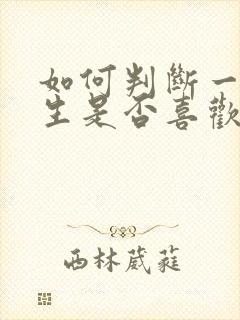 如何判斷一
生是否喜歡
西林葳蕤